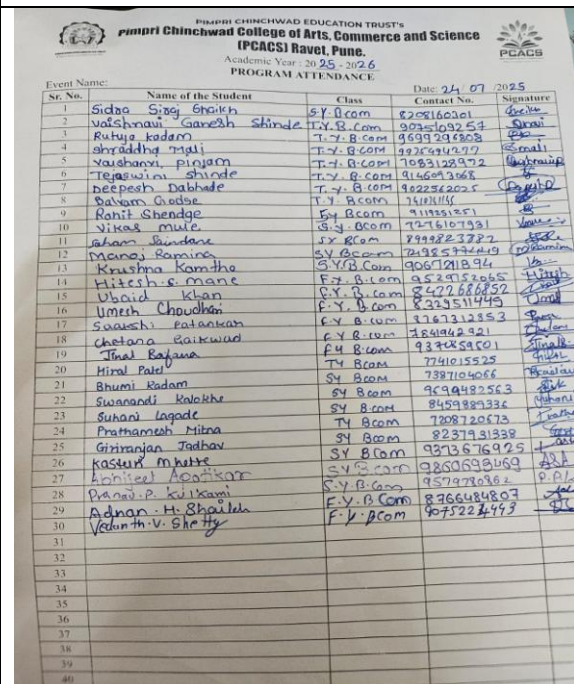 PIMPRI CHINCHWAD EDUCATION TRUST's
Pimpri Chinchwad College of Arts, Commerce and Science
(PCACS) Ravet, Pune.
PCACS
Academic Year : 2025 - 2026
PROGRAM ATTENDANCE
Event Name: Date: 24 / 07 /2025
Sr. No. Name of the Student Class Contact No. Signature
1 Sidra Siraj Shaikh S.Y.Bcom 8208160301
2 Vaishnavi Ganesh Shinde T.Y.B.Com 9075109257
3 Rutuja Kadam T.Y.B.COM 9699296808
4 Shraddha Mali T.Y.B.COM
5 Vaishanvi Pinjam T.Y.B.COM 7083128972
6 Tejaswini Shinde T.Y.B.COM 9146093068
7 Deepesh Dabhade T.Y.B.COM 9022562025
8 Balram Godse T.Y.Bcom
9 Rohit Shendge Sy Bcom 9119251251
10 Vikas mule S.y.Bcom 7276107931
11 Soham Saindane SY BCom 8999823782
12 Manoj Ramina SY Bcom
13 Krushna Kamthe S.Y.B.Com 9067211894
14 Hitesh.S.mane F.Y.B.com 9529152065 Hitesh
15 Ubaid Khan F.Y.B.com 8472686852
16 Umesh Choudhari F.Y.B.com 8329511449
17 Saakshi Patankar F.Y B.com 8767312853
18 Chetana Gaikwad F Y B.com 7841942921
19 Jinal Bafana FY B.com 9370859501
20 Hiral Patel TY Bcom 7741015525
21 Bhumi Kadam SY Bcom 7387104066
22 Swanandi Kalokhe SY Bcom 9699482563
23 Suhani Lagade SY B.com 8459889336
24 Prathamesh Mitna TY Bcom 7208720673
25 Giriranjan Jadhav SY Bcom 8237931338
26 Kasturi Mhetre SY BCom 9373676925
27 Abhijeet SYBcom 9850693469
28 Pranav.P. Kulkarni S.Y.B.Com 9579780862
29 Adnan.H.Shaikh F.Y.B Com 8766484807
30 Vedanth.V.Shetty F.Y.BCom 9075224443
31
32
33
34
35
36
37
38
39
40